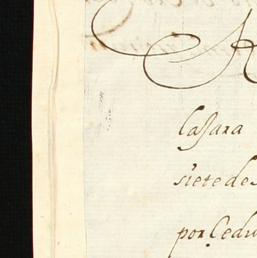 Casara
siete de
por Cedu